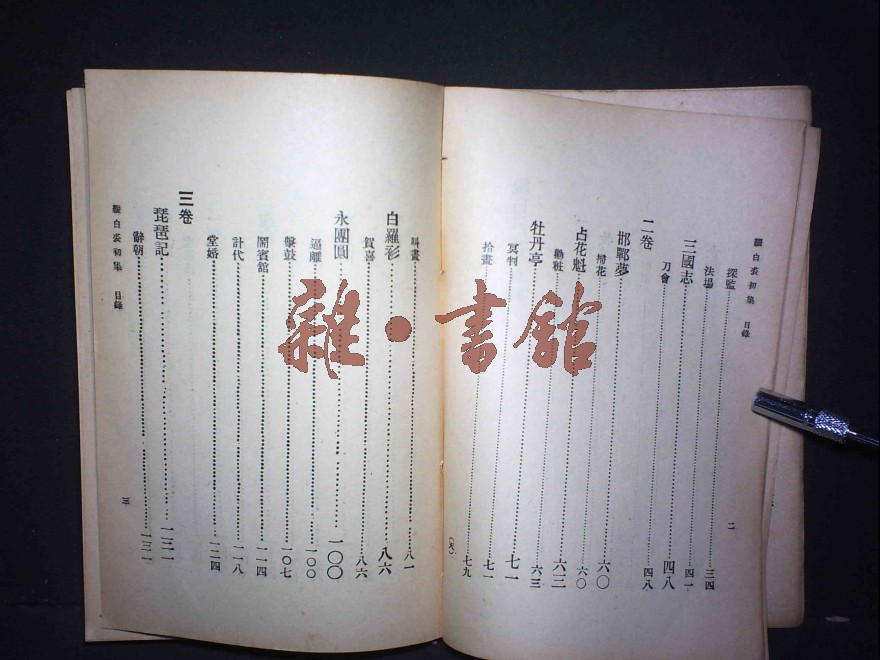 綴白裘初集 目錄
二
探監 三四
法場 四一
三國志 四八
刀會 四八
二卷
邯鄲夢 六〇
掃花 六〇
占花魁 六三
勸粧 六三
牡丹亭 七一
冥判 七一
拾畫 七九
叫畫 八一
白羅衫 八六
賀喜 八六
永團圓 一〇〇
逼離 一〇〇
擊鼓 一〇七
鬧賓館 一一四
計代 一一八
堂婚 一二四
三卷
琵琶記 一三一
辭朝 一三一
綴白裘初集 目錄
三
雜·書館